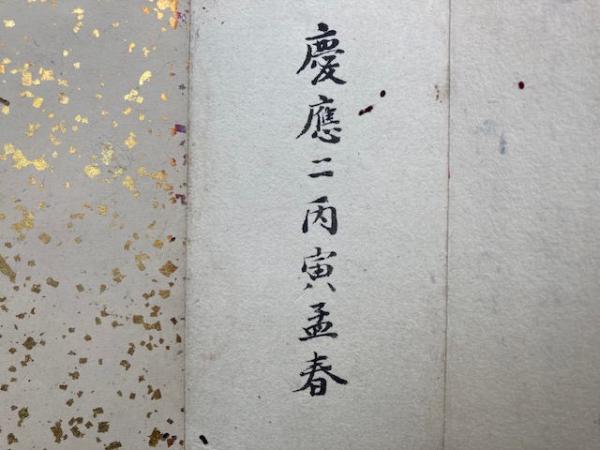 慶應二丙寅孟春